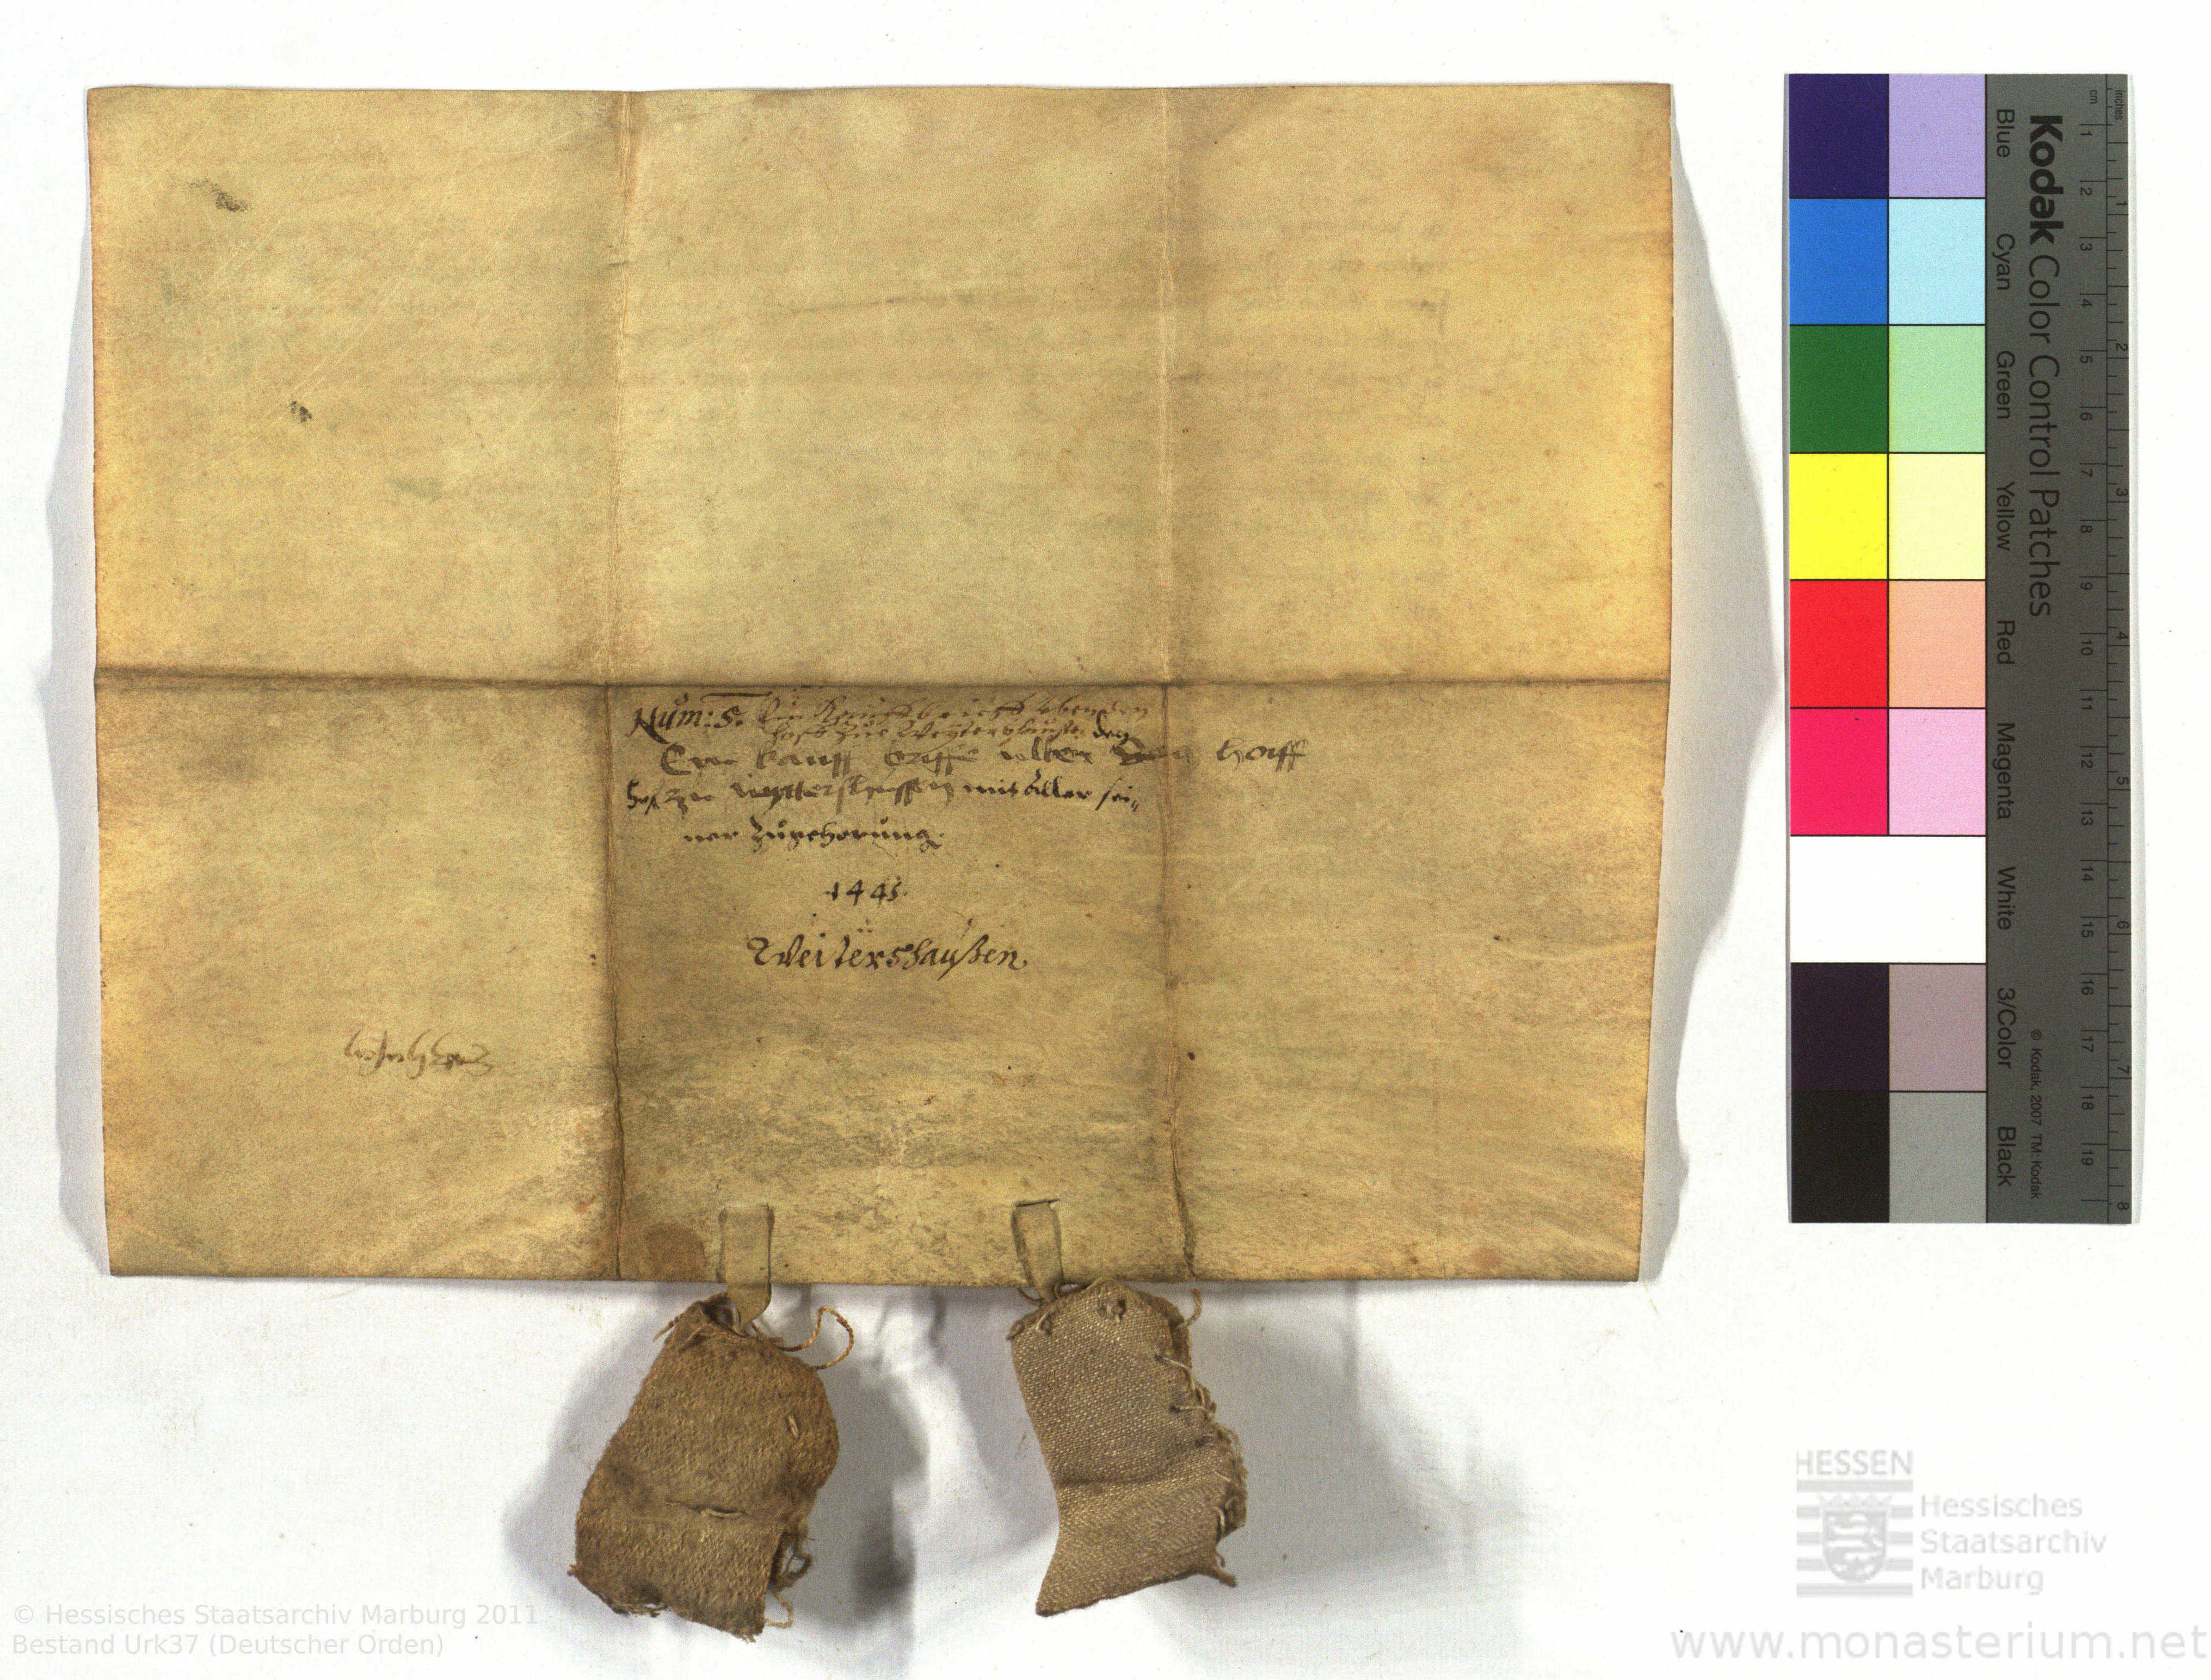 Num: 5. Ein Kauffbrieff vber den
hoff zue Weytershaußen
Eyn kauff briffe vbber den hoiff
zu wytterßhussen mit aller sei„
ner Zugehorung.
1445.
Weitershaußen
Kodak Color Control Patches
Blue Cyan Green Yellow Red Magenta White 3/Color Black
© Kodak, 2007 TM: Kodak
cm 1 2 3 4 5 6 7 8 9 10 11 12 13 14 15 16 17 18 19
inches 1 2 3 4 5 6 7 8
HESSEN
Hessisches
Staatsarchiv
Marburg
© Hessisches Staatsarchiv Marburg 2011
Bestand Urk37 (Deutscher Orden)
www.monasterium.net